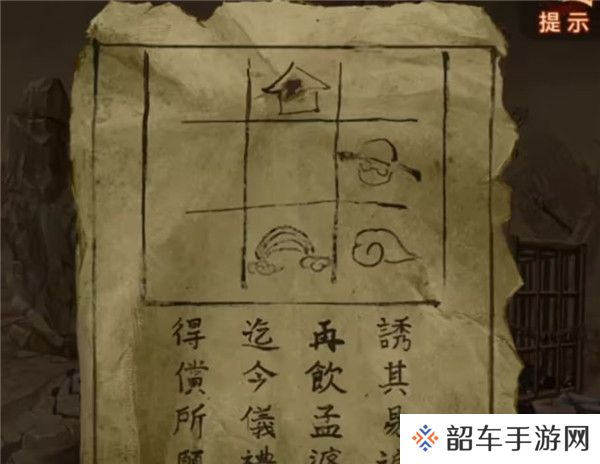 提示
誘其易
再飲孟婆
迄今儀禮
得償所願
韶车手游网